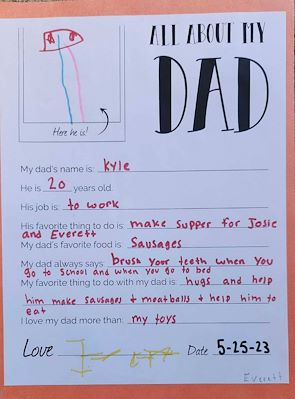 ALL ABOUT MY
DAD
Here he is!
My dad's name is: Kyle
He is 20 years old.
His job is: to work
His favorite thing to do is: make supper for Josie
and Everett
My dad's favorite food is: Sausages
My dad always says: brush your teeth when you
go to school and when you go to bed
My favorite thing to do with my dad is: hugs and help
him make sausages + meatballs + help him to
eat
I love my dad more than: my toys
Love
Date 5-25-23
Everett